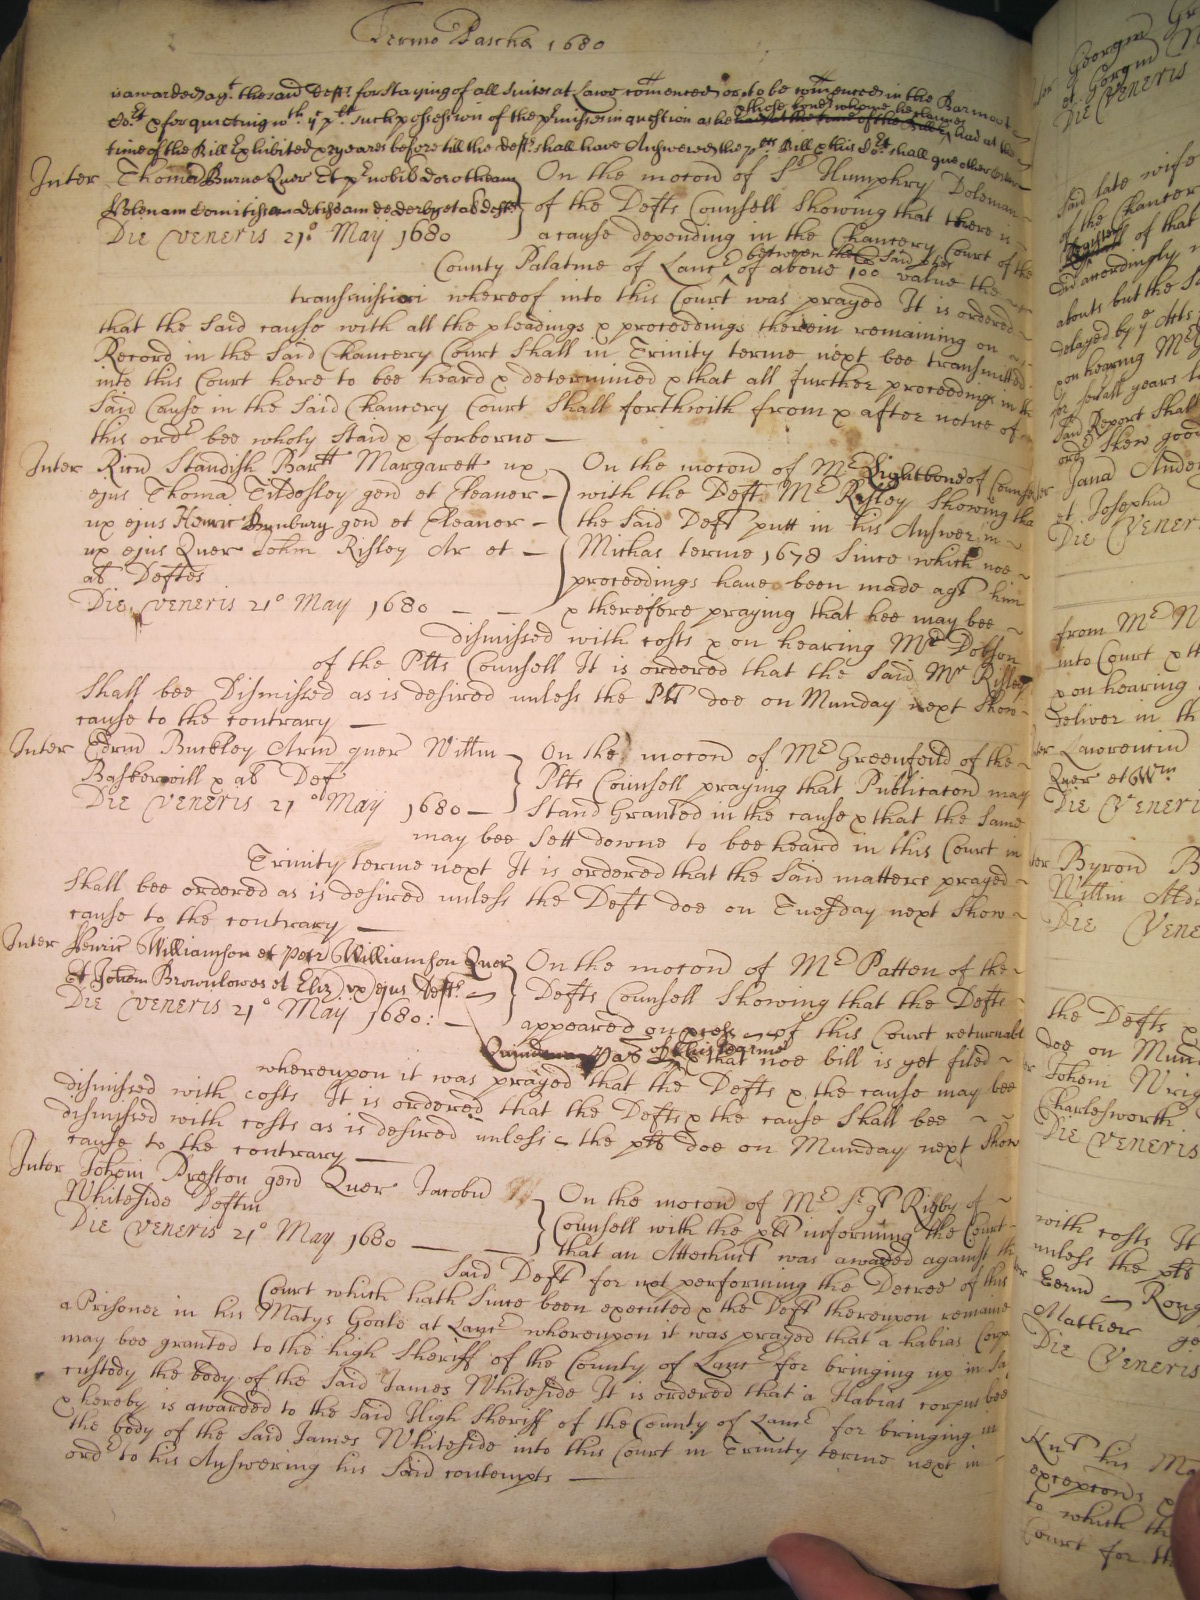 Termo Pasche 1680
is awarded agt. the said Deft. for Staying of all Suites at Lawe comenced or to be comenced in the Barmoote
Cort & for quieting in such possession of the pmisses in question as he had at the
time of the Bill Exhibited & yeares before till the deft. shall have Answered the Bill & this Cort shall give other order
Inter Thomam Burne Quer Et nobil Dorotheam
Helenam Comitissam de derby et al defts
Die Veneris 21o May 1680
On the mocon of Sr Humphry Doleman
of the Defts Counsell Showing that there is
a cause depending in the Chancery Court of the
County Palatine of Lancr between the said ptes of above 100 value the
transmission whereof into this Court was prayed It is ordered
that the said cause with all the pleadings & proceedings therein remaining on
Record in the said Chancery Court Shall in Trinity terme next bee transmitted
into this Court here to bee heard & determined & that all further proceedings in the
Said Cause in the Said Chancery Court Shall forthwith from & after notice of
this ordr bee wholy Staid & forborne —
Inter Ricu Standish Bartt Margarett ux
ejus Thoma Tildesley gen et Eleanor —
ux ejus Henric Bunbury gen et Eleanor —
ux ejus Quer Johm Risley Ar et —
al Deftes
Die Veneris 21o May 1680 — —
On the mocon of Mr Lightbone of Counse
with the Deft Mr Risley Showing tha
the said Deft putt in his Answer in
Michas terme 1678 Since which noe
proceedings have been made agt him
& therefore praying that hee may bee
dismissed with costs & on hearing Mr Dobson
of the Plts Counsell It is ordered that the Said Mr Risley
Shall bee Dismissed as is desired unless the Plt doe on Munday next Show
cause to the contrary —
Inter Edrm Buckley Arm quer Willm
Baskerwill & al Def
Die Veneris 21o May 1680 —
On the mocon of Mr Greenfeild of the
Plts Counsell praying that Publicacon may
Stand Granted in the cause & that the Same
may bee Sett downe to bee heard in this Court in
Trinity terme next It is ordered that the Said matters prayed
Shall bee ordered as is desired unless the Deft doe on Tuesday next Show
cause to the contrary —
Inter Henric Williamson et petr Williamson Quer
Et Johem Brownlowe et Eliz ux ejus Defts
Die Veneris 21o May 1680: —
On the mocon of Mr Patten of the
Defts Counsell Showing that the Defts
appeared on pcess of this Court returnabl
of this terme & that noe bill is yet filed
whereupon it was prayed that the Defts & the cause may bee
dismissed with costs It is ordered that the Defts & the cause Shall bee
dismissed with costs as is desired unless the plts doe on Munday next Show
cause to the contrary —
Inter Johem Preston gen Quer Jacobu
Whiteside Deftm
Die Veneris 21o May 1680 — —
On the mocon of Mr Sergt Rigby of
Counsell with the plt informing the Court
that an Attachmt was awaded against th
Said Deft for not performing the Decree of this
Court which hath Since been executed & the Deft thereupon remaine
a Prisoner in his Matys Goale at Lancr whereupon it was prayed that a habias Corp
may bee granted to the high Sheriff of the County of Lancr for bringing up in Sa
custody the body of the Said James Whiteside It is ordered that a Habias corpus bee
& hereby is awarded to the Said High Sheriff of the County of Lancr for bringing in
the body of the Said James Whiteside into this Court in Trinity terme next in
ordr to his Answering his Said contempts —
Georgm
Die Veneris
Said late wife
of the Chancer
of that
did accordingly
abouts but the S
delayed by
on hearing Mr
years
Said Report Shal
ordr Shew good
Jana Ander
et Josephu
Die Vener
from Mr N
into Court & tt
& on hearing
deliver in th
Lawrenciu
Quer et Wm
Die Veneri
Byrom B
Willm
Die Vene
the Defts &
doe on Mun
Johem Wrig
Charlesworth
Die Veneris
with costs It
unless the plts
Mather ge
Die Veneris
Knt his Ma
excepcons &
to which th
Court for